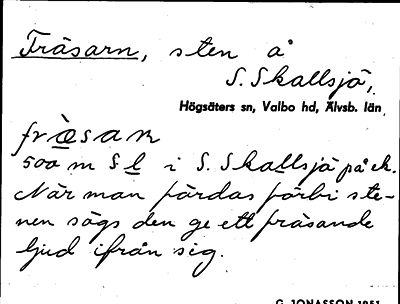 Fräsarn, sten å
S. Skallsjö,
Högsäters sn, Valbo hd, Älvsb. län
fræ̀saʀ
500 m S l i S. Skallsjö på ek.
När man färdas förbi ste-
nen sägs den ge ett fräsande
ljud ifrån sig.
G. JONASSON 1951